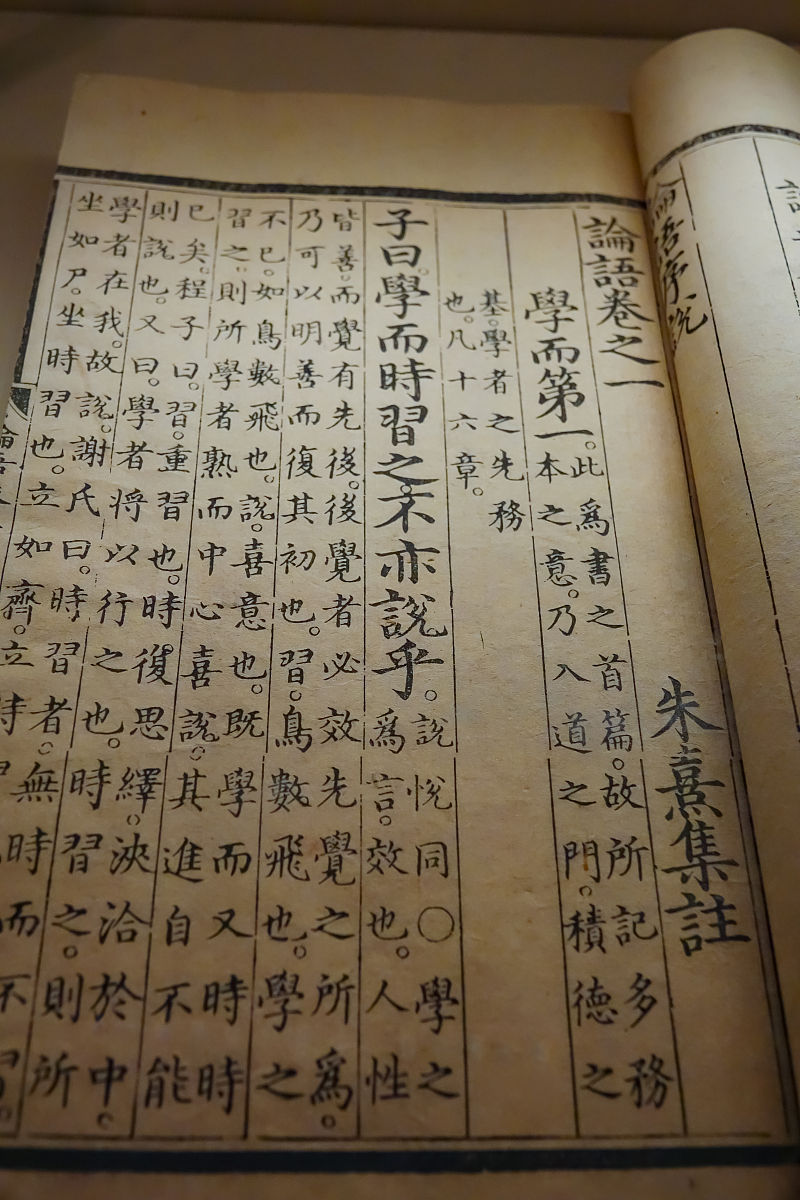 論語序說
論語卷之一
朱熹集註
學而第一。
此為書之首篇。故所記多務
本之意。乃入道之門。積德之
基。學者之先務
也。凡十六章。
子曰。學而時習之。不亦說乎。
說悅同○學之
為言。效也。人性
皆善。而覺有先後。後覺者必效先覺之所為。
乃可以明善而復其初也。習。鳥數飛也。學之
不已。如鳥數飛也。說。喜意也。既學而又時時
習之。則所學者熟而中心喜說。其進自不能
已矣。程子曰。習。重習也。時復思繹。浹洽於中。
則說也。又曰。學者將以行之也。時習之。則所
學者在我。故說。謝氏曰。時習者。無時而不習。
坐如尸。坐時習也。立如齊。立時